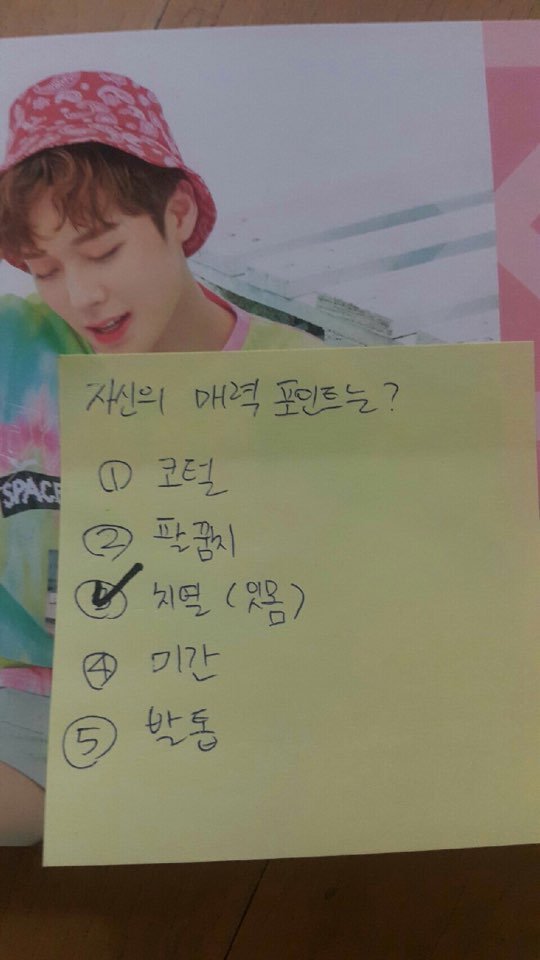 SPACE
자신의 매력 포인트는?
① 코털
② 팔꿈치
③ 치열 (잇몸)
④ 미간
⑤ 발톱